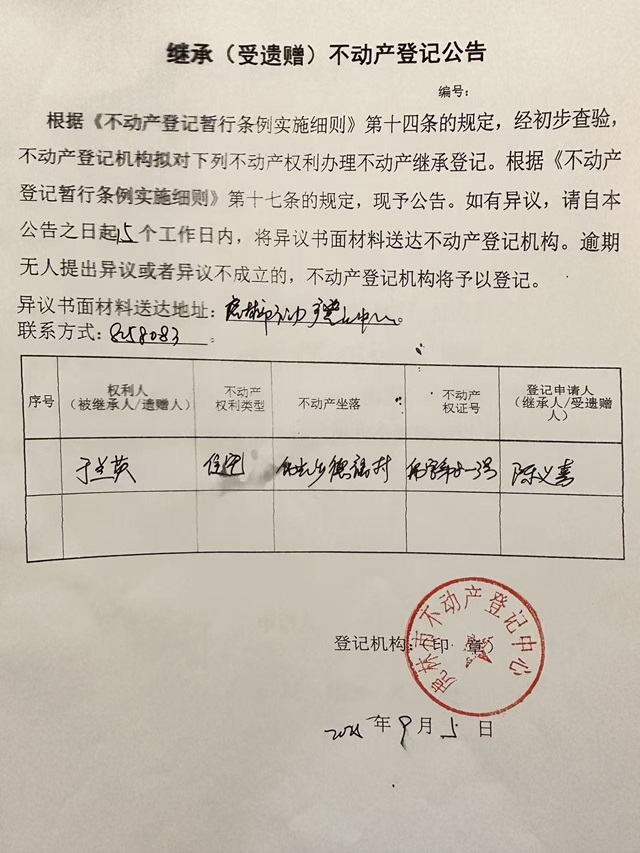 继承（受遗赠）不动产登记公告
编号：
根据《不动产登记暂行条例实施细则》第十四条的规定，经初步查验，
不动产登记机构拟对下列不动产权利办理不动产继承登记。根据《不动产
登记暂行条例实施细则》第十七条的规定，现予公告。如有异议，请自本
公告之日起15个工作日内，将异议书面材料送达不动产登记机构。逾期
无人提出异议或者异议不成立的，不动产登记机构将予以登记。
异议书面材料送达地址：虎林市不动产登记中心。
联系方式：8258083。
序号 权利人（被继承人/遗赠人） 不动产权利类型 不动产坐落 不动产权证号 登记申请人（继承人/受遗赠人）
于兰英 住宅 德福村 陈义喜
登记机构：印 章
虎林市不动产登记中心
年9月5日